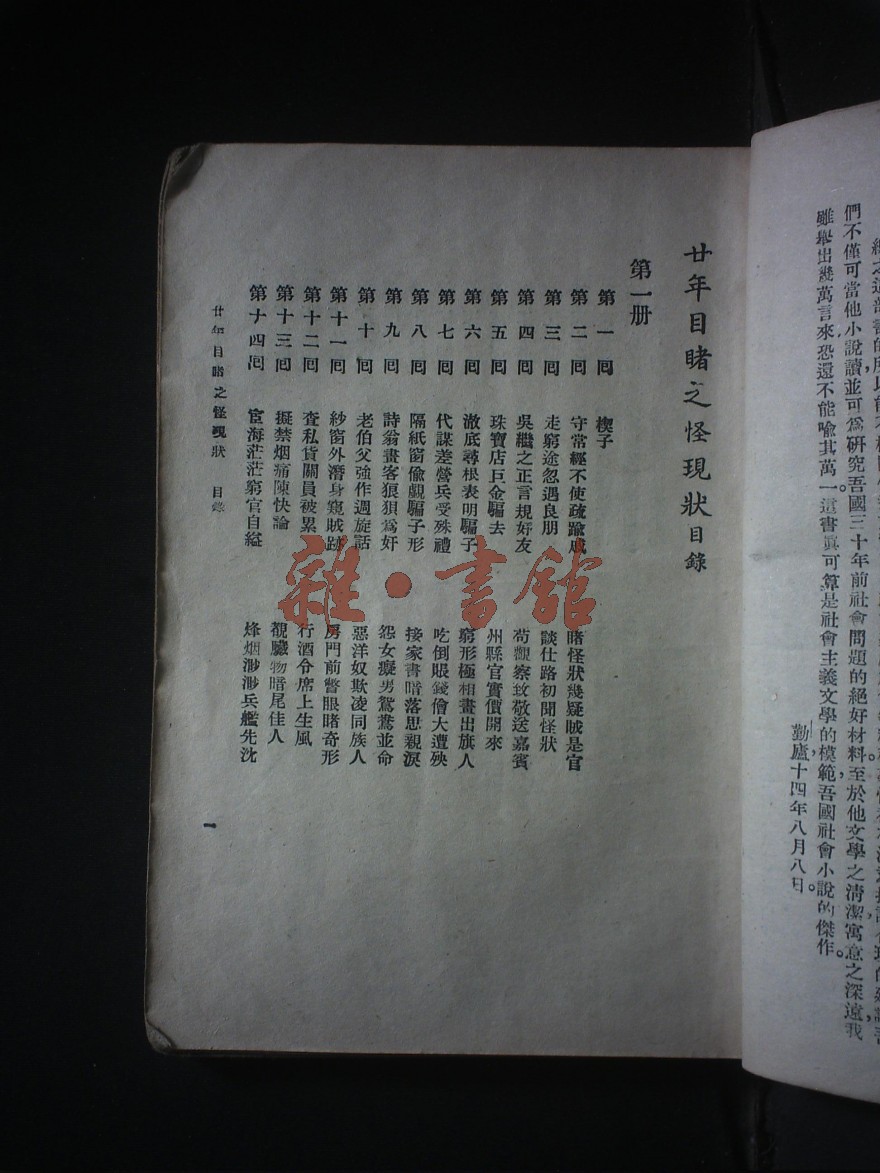 們不僅可當他小說讀並可爲研究吾國三十年前社會問題的絕好材料至於他文學之淸潔寓意之深遠我
雖舉出幾萬言來恐還不能喩其萬一這書眞可算是社會主義文學的模範吾國社會小說的傑作。
勤廬十四年八月八日。
廿年目睹之怪現狀目錄
第一册
第一回 楔子
第二回 守常經不使疏踰戚 睹怪狀幾疑賊是官
第三回 走窮途忽遇良朋 談仕路初聞怪狀
第四回 吳繼之正言規好友 苟觀察致敬送嘉賓
第五回 珠寶店巨金騙去 州縣官實價開來
第六回 澈底尋根表明騙子 窮形極相畫出旗人
第七回 代謀差營兵受殊禮 吃倒賬錢儈大遭殃
第八回 隔紙窗偷覷騙子形 接家書暗落思親淚
第九回 詩翁畫客狼狽爲奸 怨女癡男鴛鴦並命
第十回 老伯父強作週旋話 惡洋奴欺凌同族人
第十一回 紗窗外潛身窺賊跡 房門前瞥眼睹奇形
第十二回 查私貨關員被累 行酒令席上生風
第十三回 擬禁烟痛陳快論 覩臟物暗尾佳人
第十四回 宦海茫茫窮官自縊 烽烟渺渺兵艦先沈
廿年目睹之怪現狀 目錄
一
雜·書館